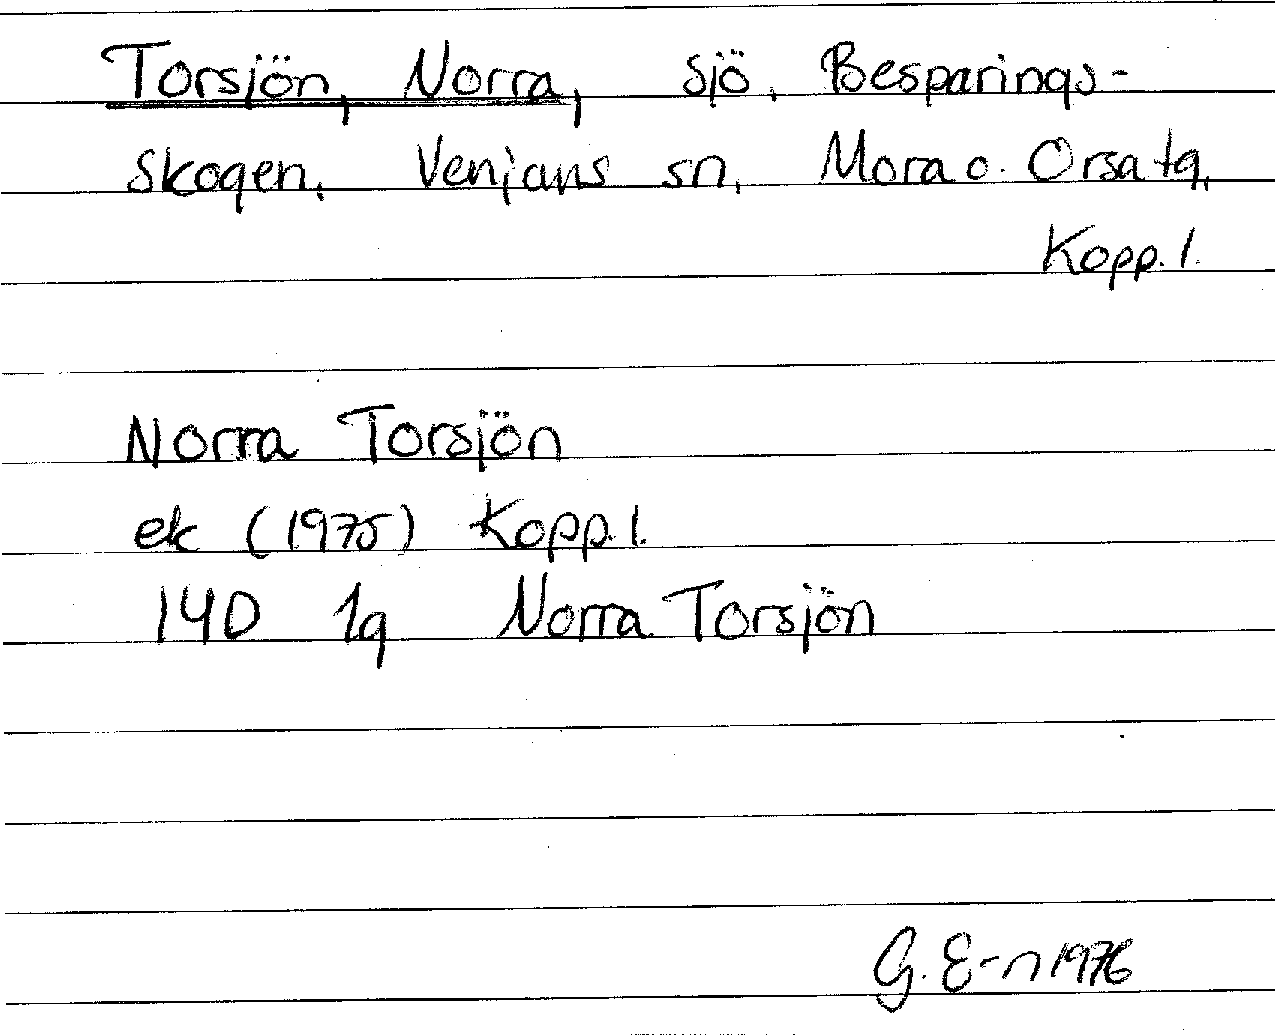 Torsjön, Norra, sjö, Besparings-
skogen, Venjans sn, Mora o. Orsa tg,
Kopp. l.
Norra Torsjön
ek (1975) Kopp. l.
14D 1g Norra Torsjön
G. E-n 1976